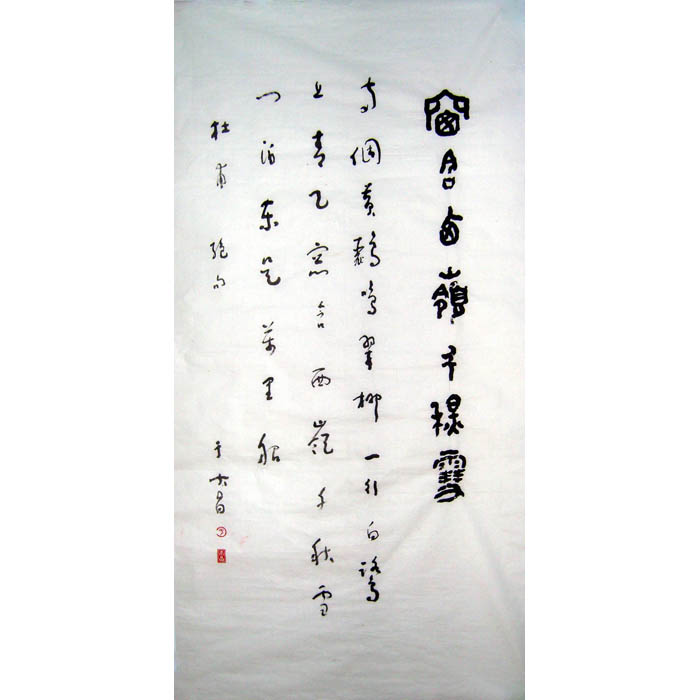 窗含西嶺千秋雪
两個黄鸝鳴翠柳一行白鷺
上青天窓含西嶺千秋雪
门泊東吴萬里船
杜甫 絶句